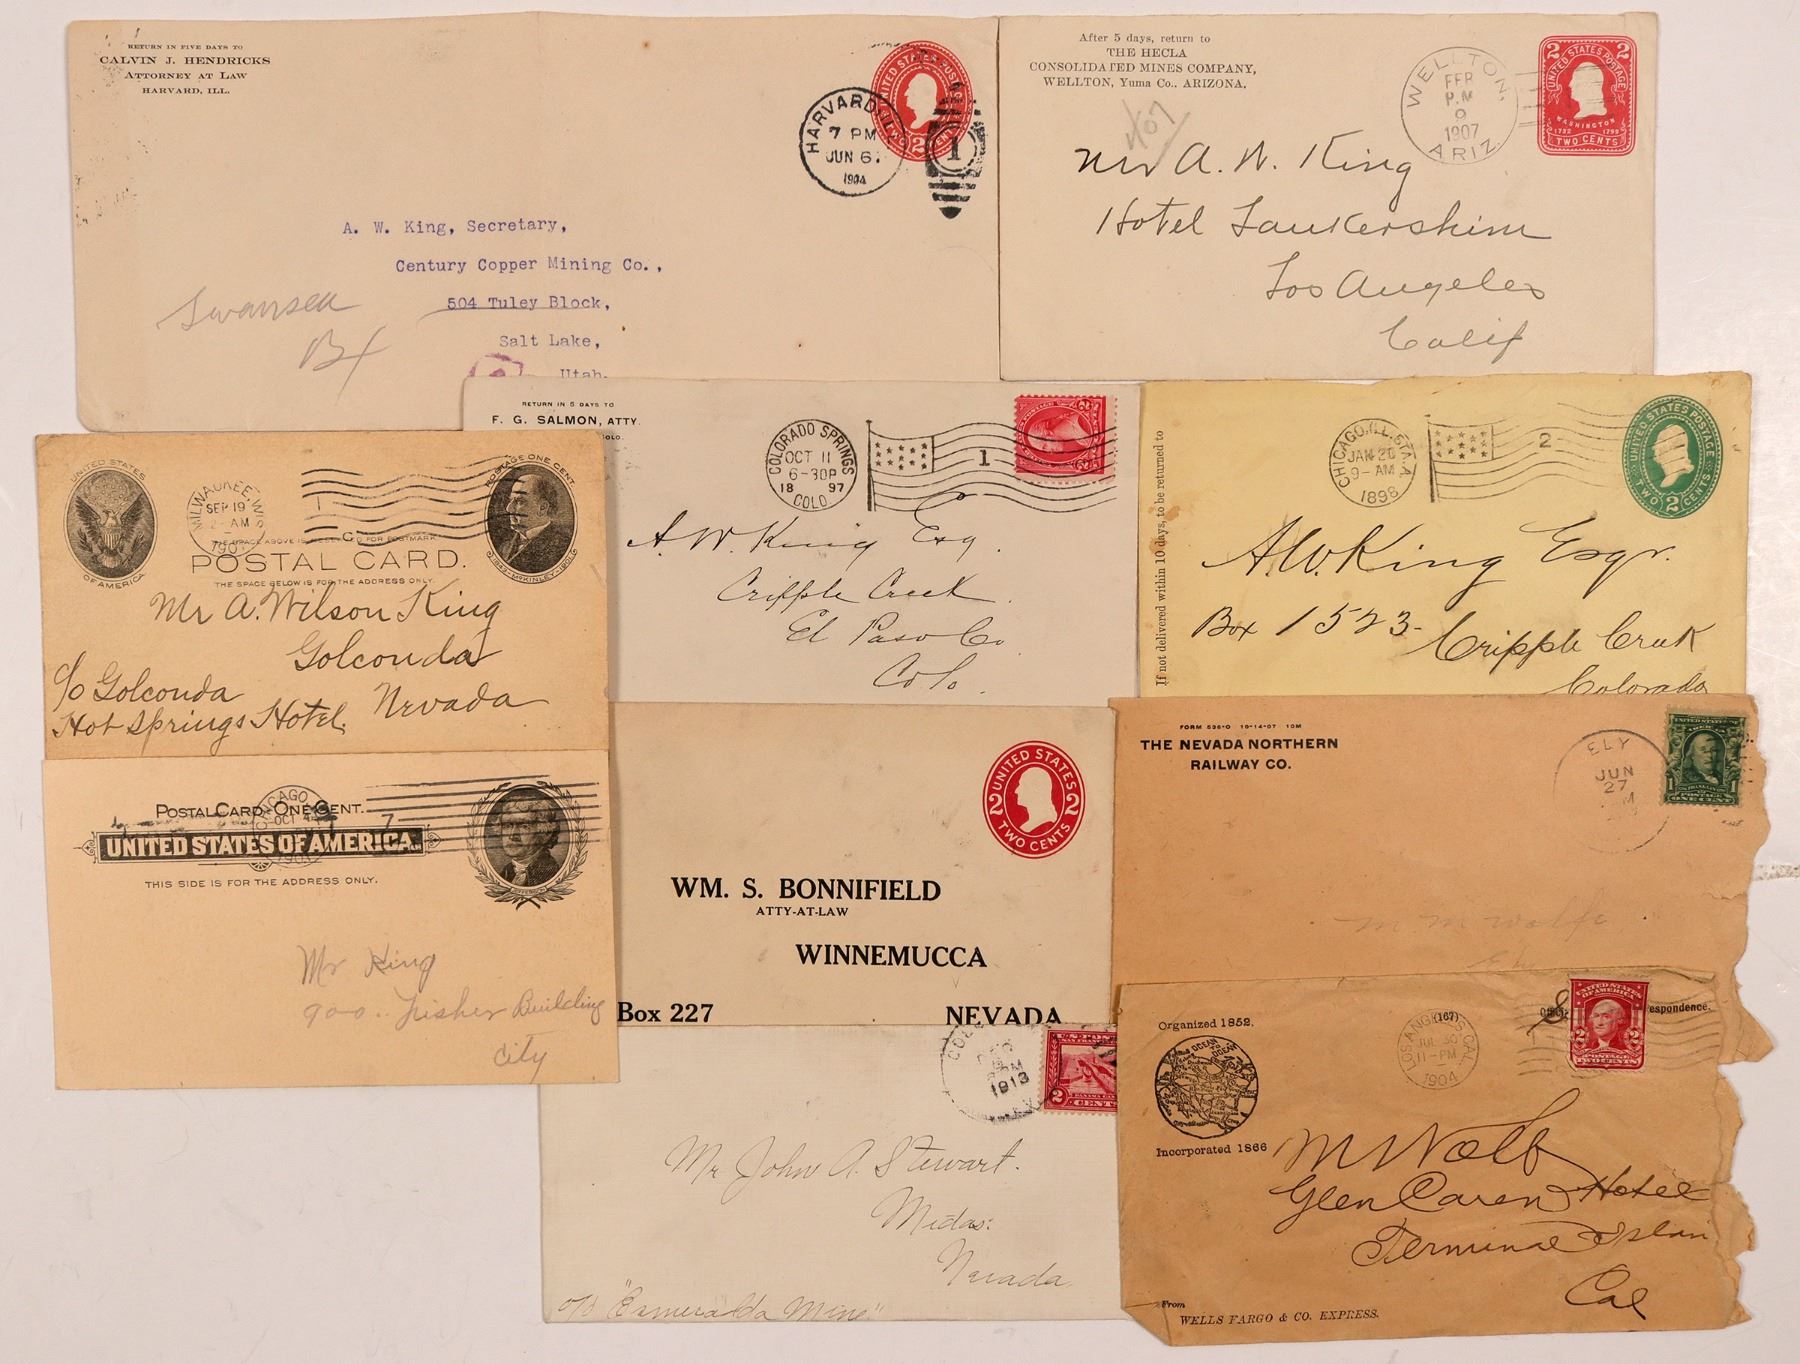 RETURN IN FIVE DAYS TO
CALVIN J. HENDRICKS
ATTORNEY AT LAW
HARVARD, ILL.
HARVARD, ILL.
7 PM
JUN 6
1904
1
UNITED STATES POSTAGE
2
A. W. King, Secretary,
Century Copper Mining Co.,
504 Tuley Block,
Salt Lake,
Utah.
Swansea
Bx
After 5 days, return to
THE HECLA
CONSOLIDATED MINES COMPANY,
WELLTON, Yuma Co., ARIZONA.
WELLTON,
FEB
P.M
9
1907
ARIZ.
2 2
UNITED STATES POSTAGE
WASHINGTON
1732 1799
TWO CENTS
Mr A. W. King
Hotel Lankershim
Los Angeles
Calif
RETURN IN 5 DAYS TO
F. G. SALMON, ATTY
COLO.
COLORADO SPRINGS
OCT 11
6-30P
18 97
COLO.
1
A. W. King Esq.
Cripple Creek.
El Paso Co
Colo.
If not delivered within 10 days, to be returned to
CHICAGO, ILL. STA. A
JAN 20
9-AM
1898
2
UNITED STATES POSTAGE
TWO 2 CENTS
A. W. King Esqr.
Box 1523- Cripple Creek
Colorado
UNITED STATES
OF AMERICA
MILWAUKEE, WIS
SEP 19
AM
POSTAGE ONE CENT.
1843-McKINLEY-1901
THE SPACE ABOVE IS RESERVED FOR POSTMARK.
POSTAL CARD.
THE SPACE BELOW IS FOR THE ADDRESS ONLY.
Mr A. Wilson King
Golconda
Nevada
c/o Golconda
Hot Springs Hotel.
POSTAL CARD-ONE CENT.
UNITED STATES OF AMERICA.
THIS SIDE IS FOR THE ADDRESS ONLY.
CHICAGO
OCT
7
JEFFERSON
Mr King
900. Fisher Building
City
UNITED STATES
2 2
TWO CENTS
WM. S. BONNIFIELD
ATTY-AT-LAW
WINNEMUCCA
Box 227
NEVADA
FORM 536-O 10-14-07 10M
THE NEVADA NORTHERN
RAILWAY CO.
ELY
JUN
27
M
1 1
ONE CENT
1913
2 CENTS
Mr John A. Stewart.
Midas:
Nevada
c/o "Esmeralda Mine"
Organized 1852.
OCEAN TO OCEAN
Incorporated 1866
(167)
espondence.
LOS ANGELES, CAL.
JUL 30
11-PM
1904
UNITED STATES
OF AMERICA
2 2
POSTAGE
TWO CENTS
M Wolf
Glen Caren Hotel
Terminal Islan
Cal
From
WELLS FARGO & CO. EXPRESS.